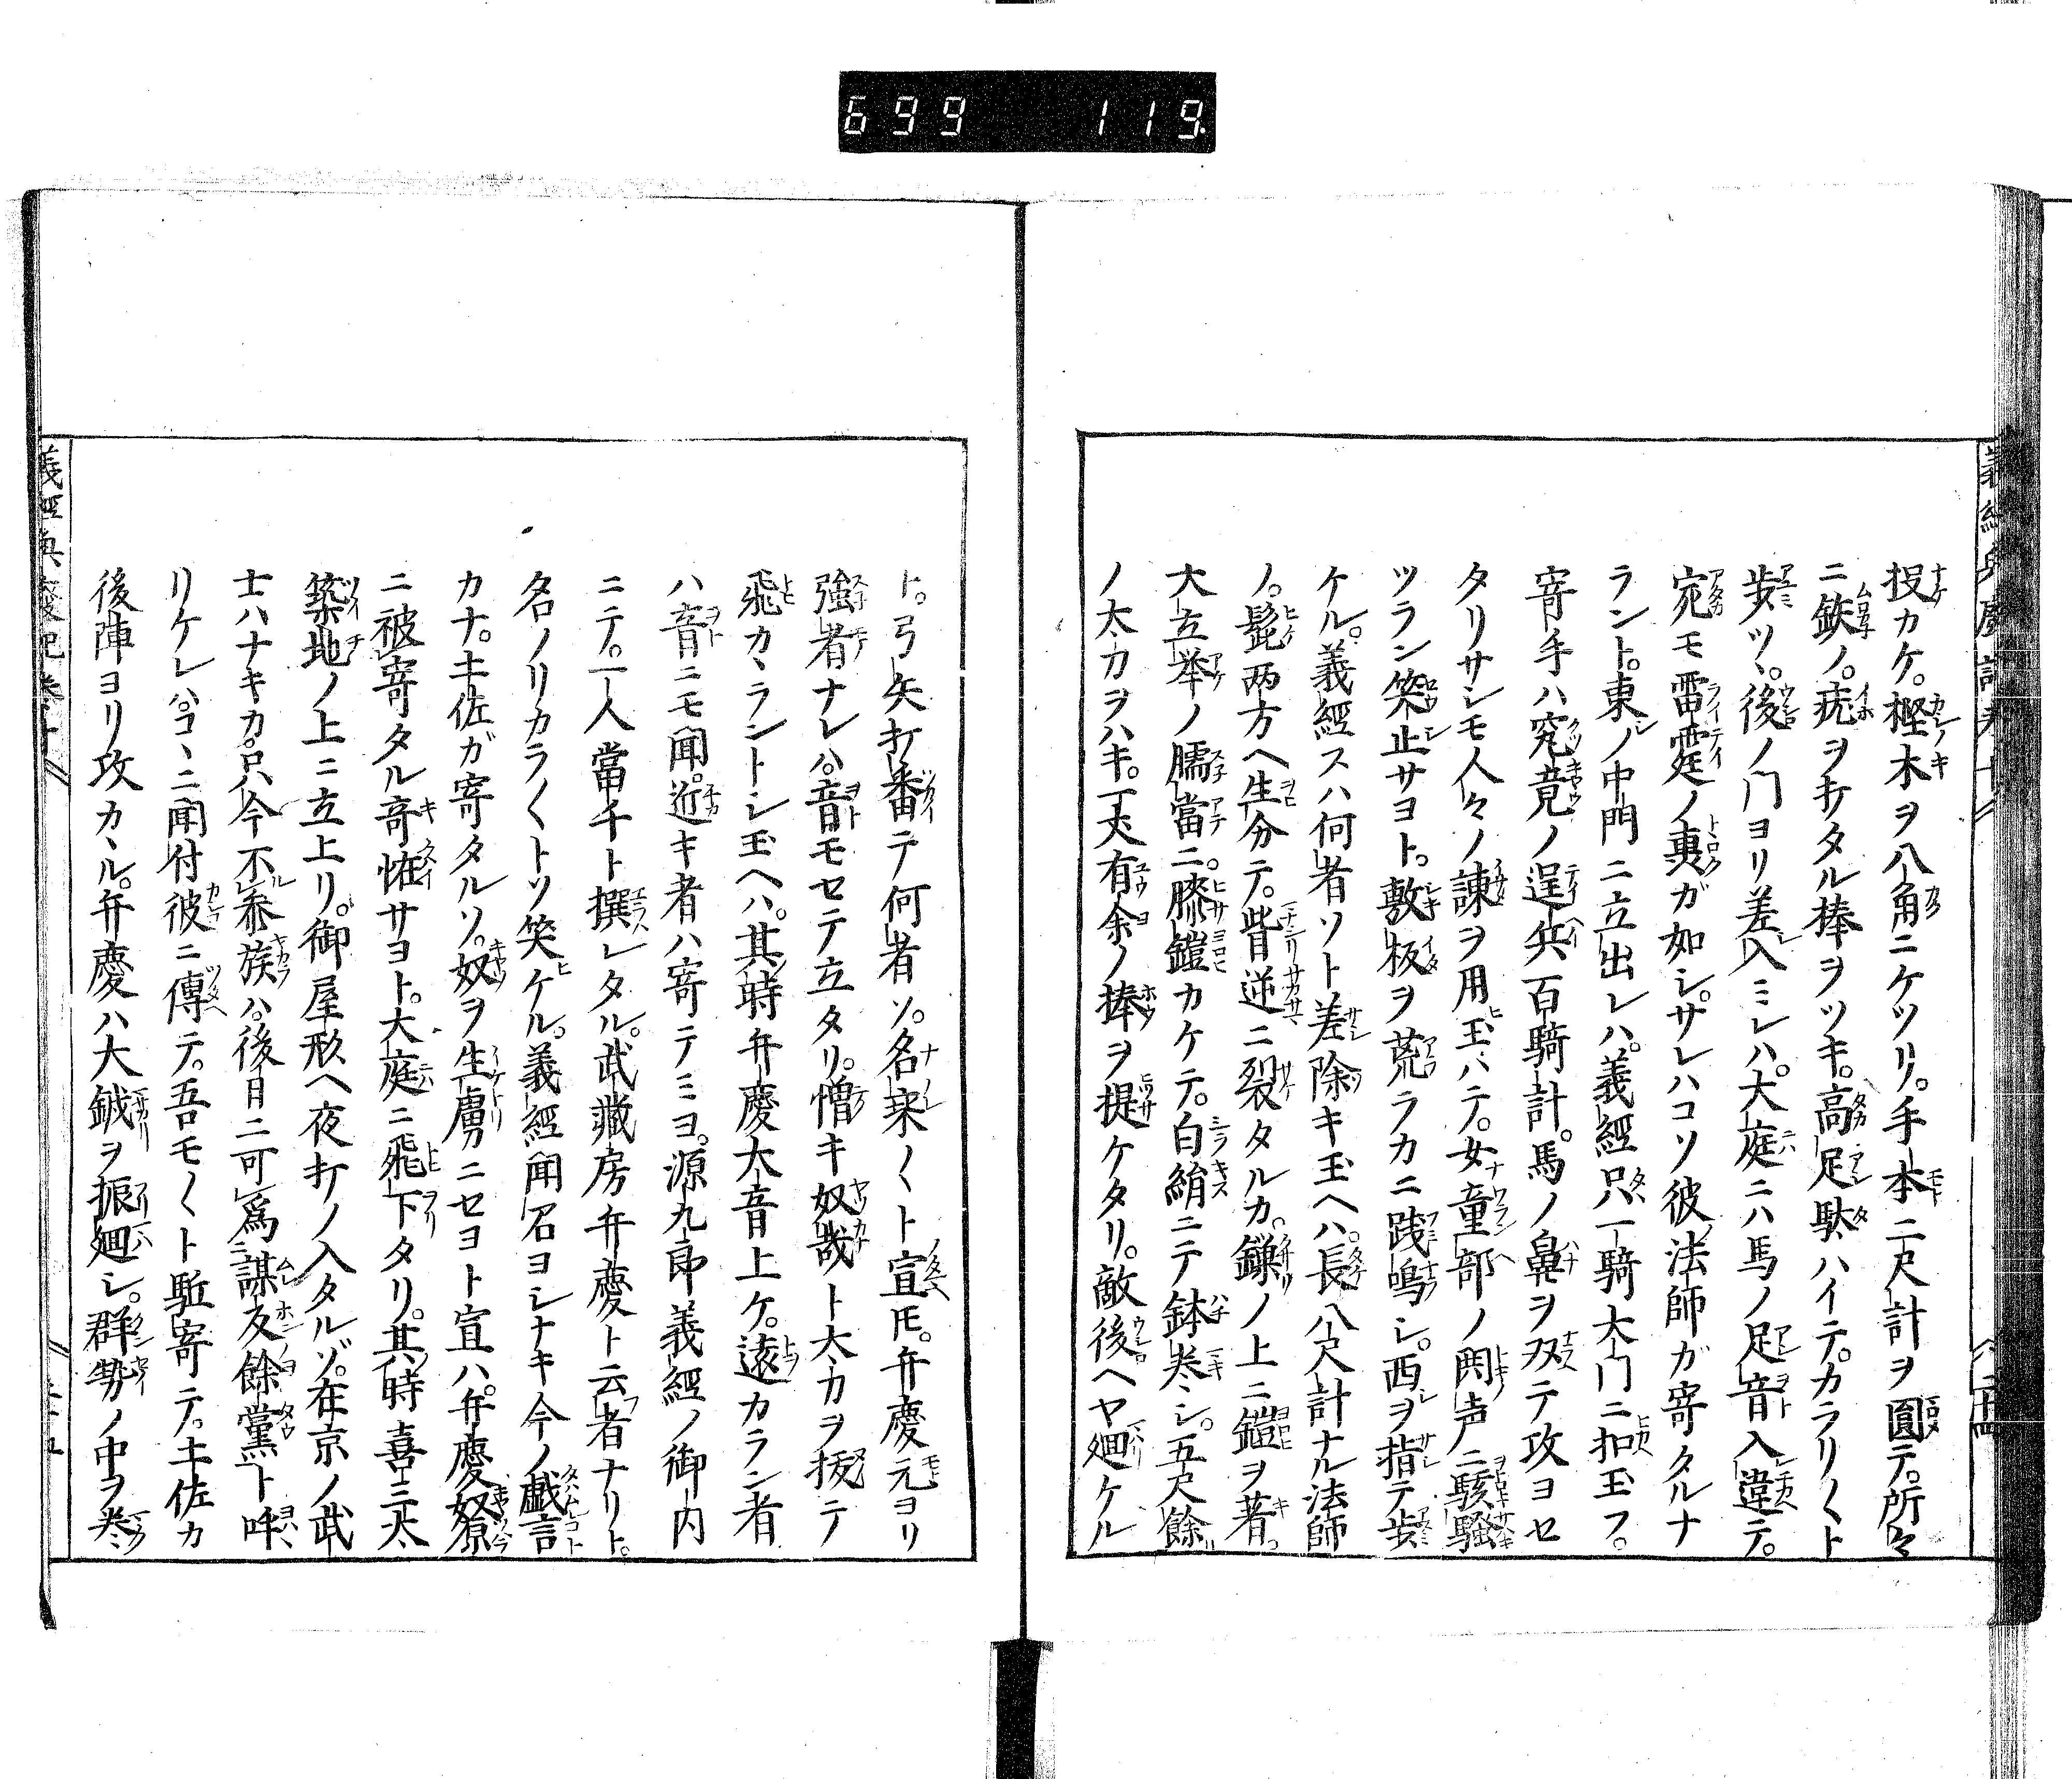 699 119
投カケ。樫木ヲ八角ニケツリ。手本二尺計ヲ圓テ。所々
ニ鉄ノ。疣ヲ打タル棒ヲツキ。高足駄ハイテ。カラリ〱ト
歩ツヽ。後ノ门ヨリ差入ミレハ。大庭ニハ馬ノ足音入違テ。
宛モ雷霆ノ轟ガ如シ。サレハコソ彼法師ガ寄タルナ
ラント。東ノ中門ニ立出レハ。義經只一騎大门ニ扣玉フ。
寄手ハ究竟ノ逞兵百騎計。馬ノ鼻ヲ双テ攻ヨセ
タリサシモ人々ノ諌ヲ用玉ハテ。女童部ノ鬨声ニ駭騒
ツラン笑止サヨト。敷板ヲ荒ラカニ践鳴シ。西ヲ指テ歩
ケル。義經スハ何者ソト差除キ玉ヘハ。長八尺計ナル法師
ノ。髭両方ヘ生分テ。眥逆ニ裂タルカ。鏁ノ上ニ鎧ヲ著。
大立挙ノ臑當ニ。膝鎧カケテ。白絹ニテ鉢巻シ。五尺餘
ノ太刀ヲハキ。一丈有余ノ捧ヲ提ケタリ。敵後ヘヤ廻ケル
ト。弓矢打番テ何者ソ。名乗〱ト宣㪽。弁慶元ヨリ
強者ナレハ。音モセテ立タリ。憎キ奴哉ト大刀ヲ抜テ
飛カヽラントシ玉ヘハ。其時弁慶大音上ケ。遠カラン者
ハ音ニモ聞。近キ者ハ寄テミヨ。源九郎義經ノ御内
ニテ。一人當千ト撰レタル。武藏房弁慶ト云者ナリト。
名ノリカラ〱トソ笑ケル。義經聞召ヨシナキ今ノ戲言
カナ。土佐ガ寄タルソ。奴ヲ生膚ニセヨト宣ハ。弁慶奴原
ニ被寄タル奇恠サヨト。大庭ニ飛下タリ。其時喜三太
築地ノ上ニ立上リ。御屋形ヘ夜打ノ入タルゾ。在京ノ武
士ハナキカ。只今不参族ハ。後日ニ可為謀反餘黨ト呼
リケレハ。コヽニ聞付彼ニ傳テ。吾モ〱ト駈寄テ。土佐カ
後陣ヨリ攻カヽル。弁慶ハ大鉞ヲ振廻シ。群勢ノ中ヲ巻